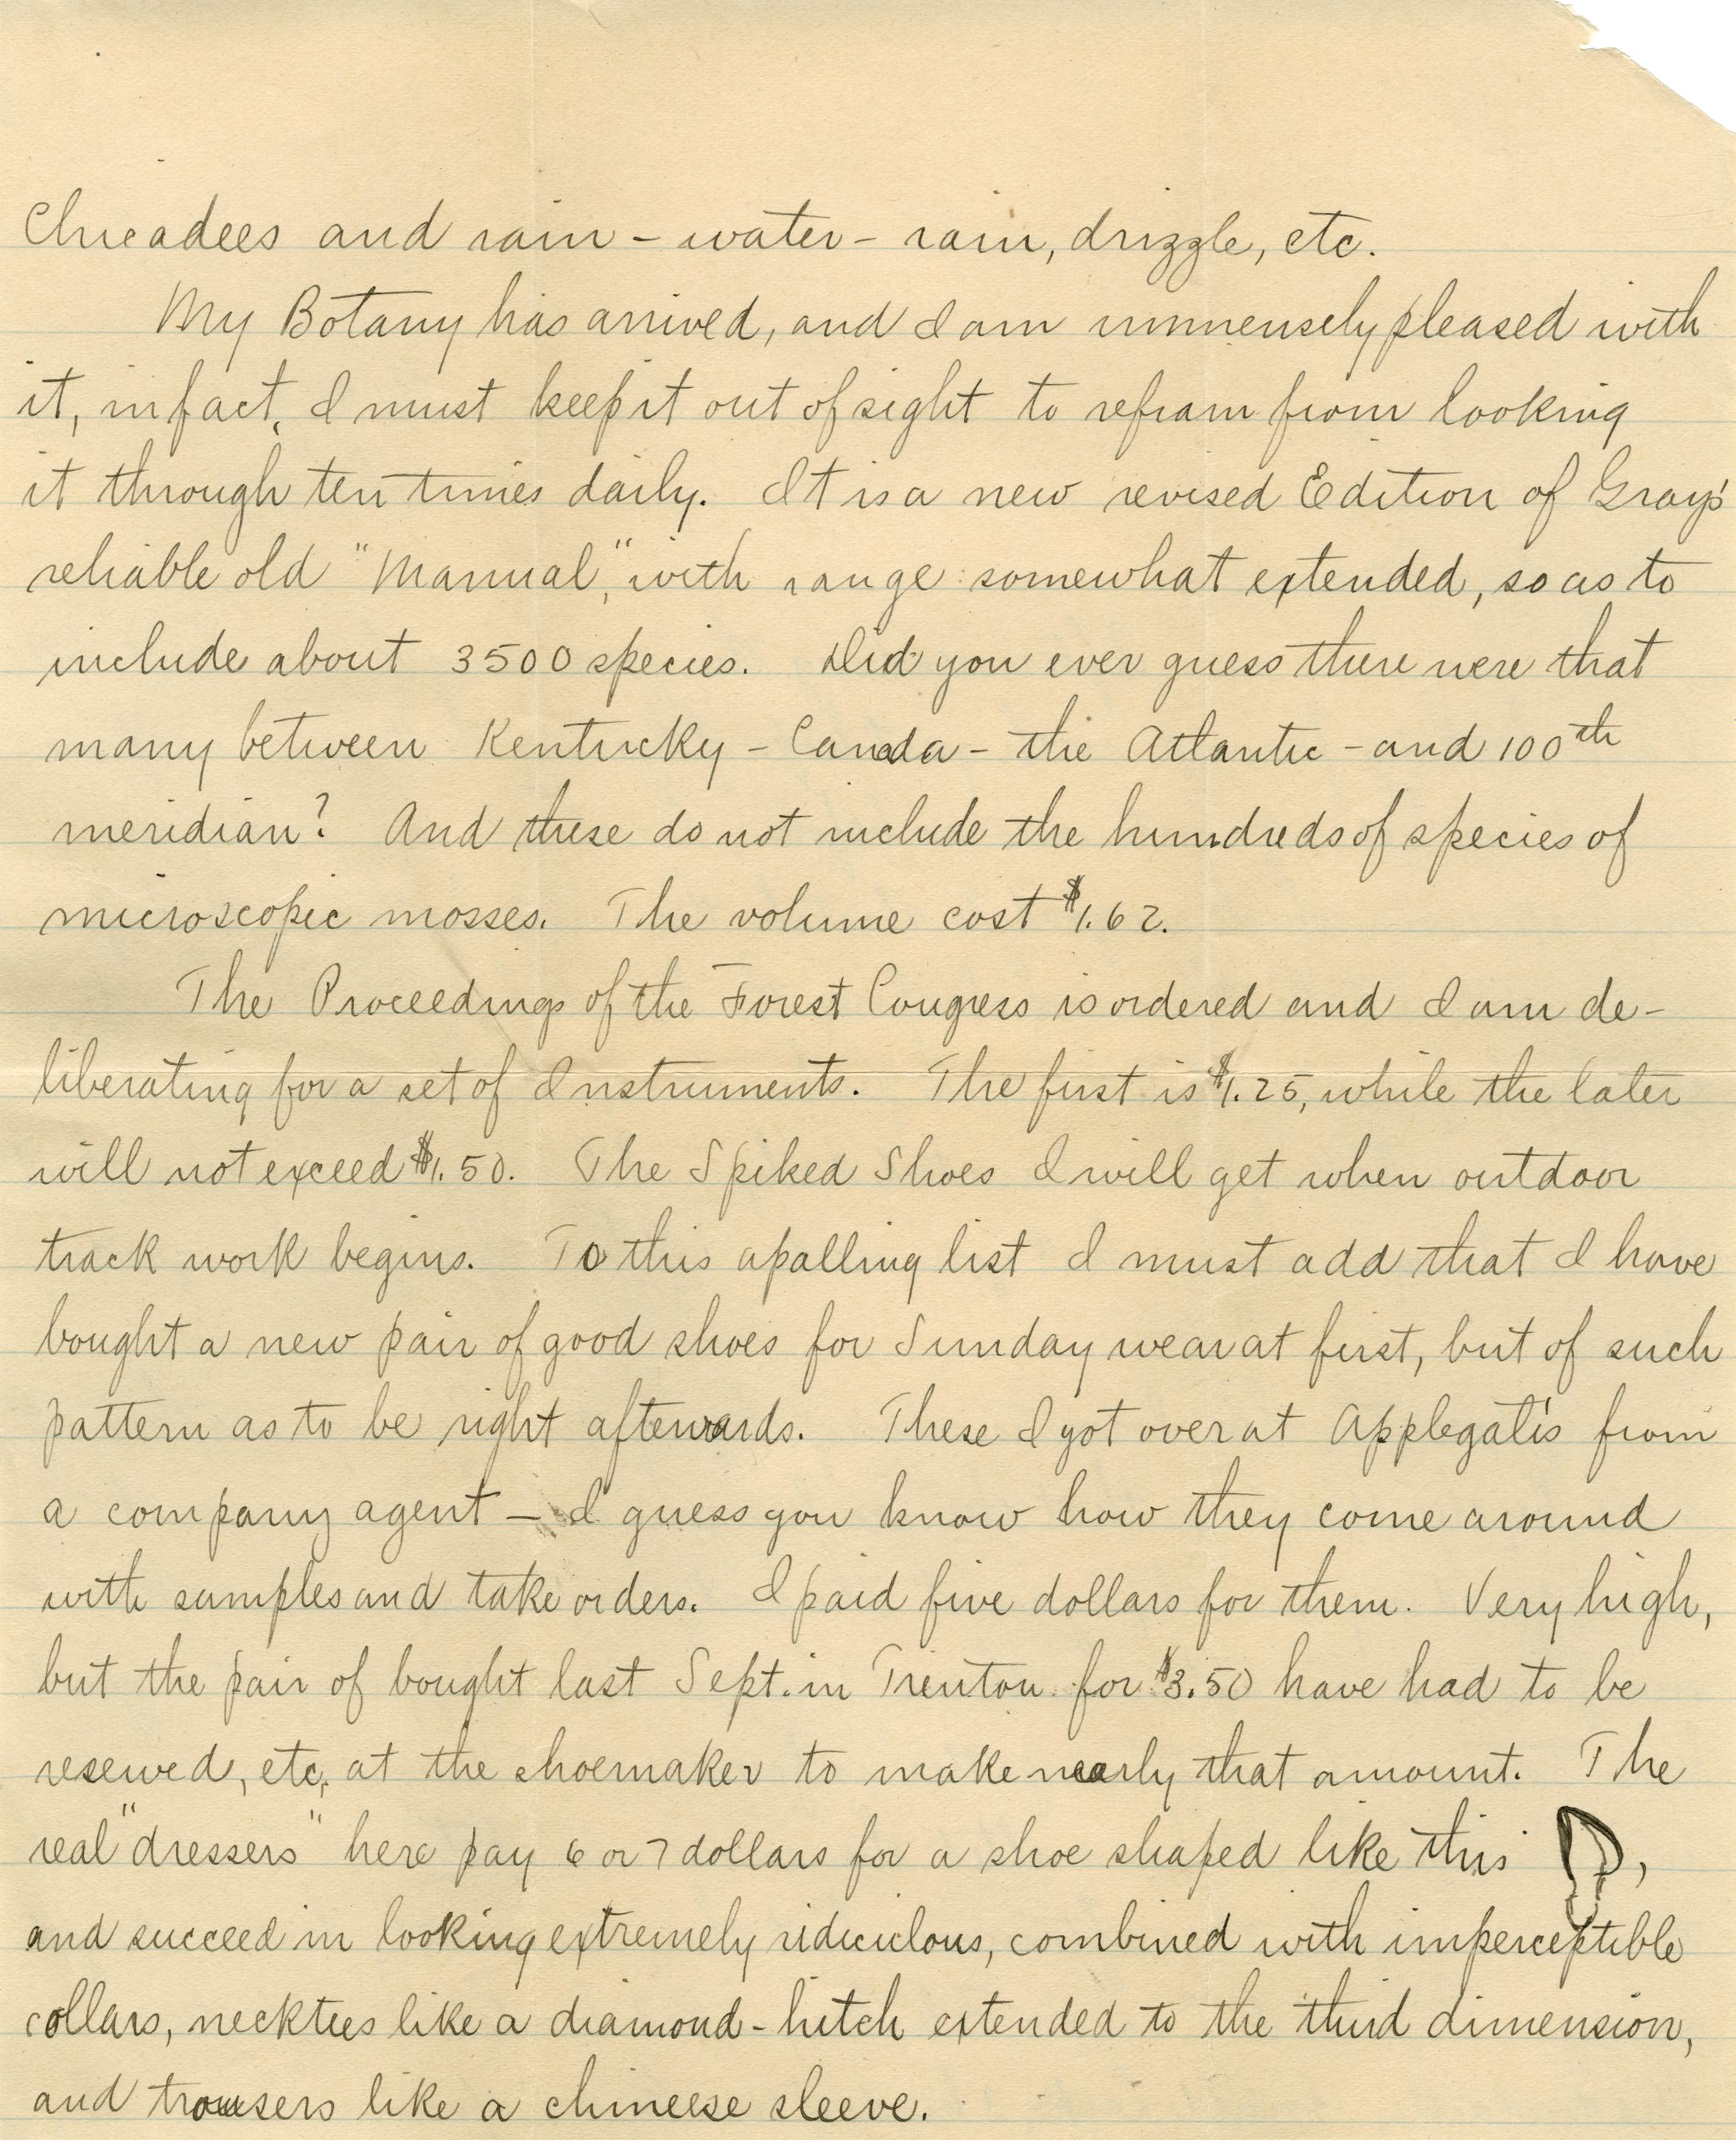 Chicadees and rain - water - rain, drizzle, etc.
My Botany has arrived, and I am immensely pleased with
it, in fact, I must keep it out of sight to refrain from looking
it through ten times daily. It is a new revised Edition of Gray's
reliable old "Manual," with range somewhat extended, so as to
include about 3500 species. Did you ever guess there were that
many between Kentucky - Canada - the Atlantic - and 100th
meridian? And these do not include the hundreds of species of
microscopic mosses. The volume cost $1.62.
The Proceedings of the Forest Congress is ordered and I am de-
liberating for a set of Instruments. The first is $1.25, while the later
will not exceed $1.50. The Spiked Shoes I will get when outdoor
track work begins. To this apalling list I must add that I have
bought a new pair of good shoes for Sunday wear at first, but of such
pattern as to be right afterwards. These I got over at Applegate's from
a company agent - I guess you know how they come around
with samples and take orders. I paid five dollars for them. Very high,
but the pair of bought last Sept. in Trenton for $3.50 have had to be
resewed, etc, at the shoemaker to make nearly that amount. The
real "dressers" here pay 6 or 7 dollars for a shoe shaped like this ,
and succeed in looking extremely ridiculous, combined with imperceptible
collars, neckties like a diamond-hitch extended to the third dimension,
and trousers like a chineese sleeve.